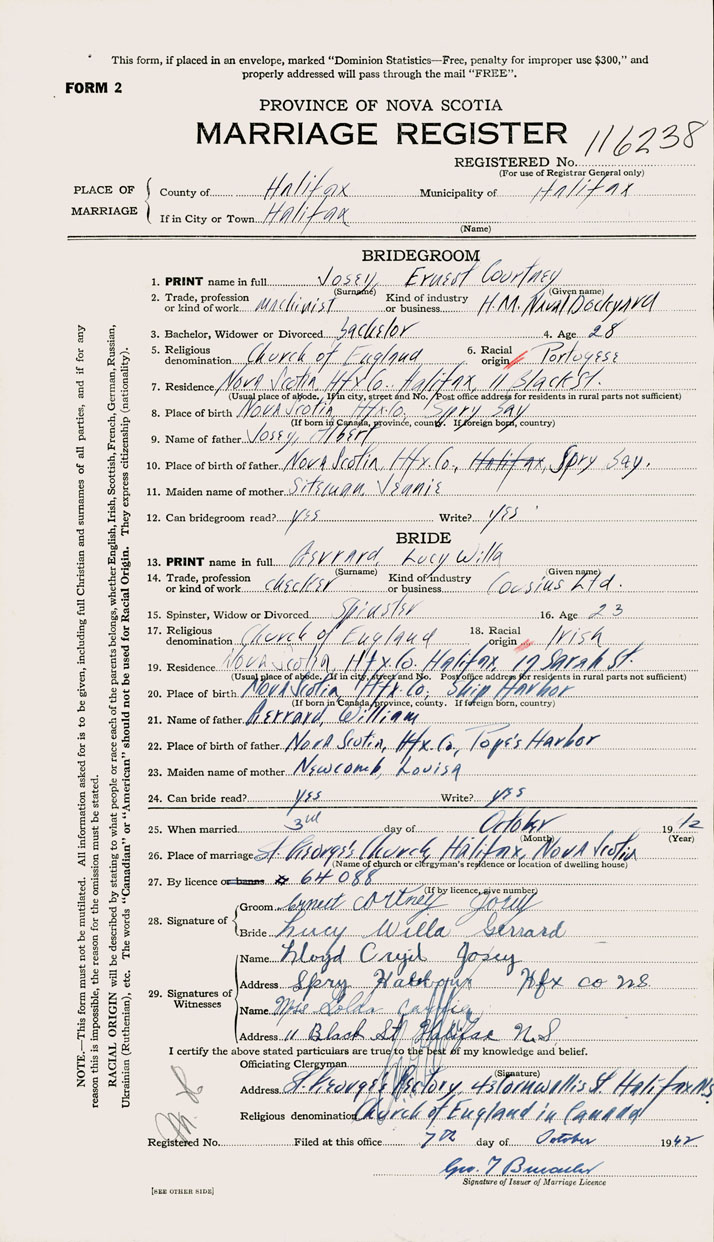 This form, if placed in an envelope, marked "Dominion Statistics—Free, penalty for improper use $300," and
properly addressed will pass through the mail "FREE".
FORM 2
PROVINCE OF NOVA SCOTIA
MARRIAGE REGISTER 116238
REGISTERED No.
(For use of Registrar General only)
PLACE OF MARRIAGE
County of Halifax Municipality of Halifax
If in City or Town Halifax
(Name)
BRIDEGROOM
1. PRINT name in full Josey, Ernest Courtney
(Surname) (Given name)
2. Trade, profession or kind of work machinist Kind of industry or business H.M. Naval Dockyard
3. Bachelor, Widower or Divorced bachelor 4. Age 28
5. Religious denomination Church of England 6. Racial origin Portugese
7. Residence Nova Scotia Hfx Co. Halifax, 11 Black St.
(Usual place of abode. If in city, street and No. Post office address for residents in rural parts not sufficient)
8. Place of birth Nova Scotia Hfx.Co. Spry Bay
(If born in Canada, province, county. If foreign born, country)
9. Name of father Josey, Albert
10. Place of birth of father Nova Scotia, Hfx.Co., Halifax, Spry Bay.
11. Maiden name of mother Siteman Jeanie
12. Can bridegroom read? yes Write? yes
BRIDE
13. PRINT name in full Gerrard, Lucy Willa
(Surname) (Given name)
14. Trade, profession or kind of work checker Kind of industry or business Cousins Ltd.
15. Spinster, Widow or Divorced Spinster 16. Age 23
17. Religious denomination Church of England 18. Racial origin Irish
19. Residence Nova Scotia, Hfx Co. Halifax 17 Sarah St.
(Usual place of abode. If in city, street and No. Post office address for residents in rural parts not sufficient)
20. Place of birth Nova Scotia, Hfx Co, Ship Harbor
(If born in Canada, province, county. If foreign born, country)
21. Name of father Gerrard, William
22. Place of birth of father Nova Scotia, Hfx.Co, Pope's Harbor
23. Maiden name of mother Newcomb, Louisa
24. Can bride read? yes Write? yes
25. When married 3rd day of October 1942
(Month) (Year)
26. Place of marriage St. George's Church, Halifax, Nova Scotia
(Name of church or clergyman's residence or location of dwelling house)
27. By licence or banns 64088
(If by licence, give number)
28. Signature of
Groom Ernest Cortney Josey
Bride Lucy Willa Gerrard
29. Signatures of Witnesses
Name Lloyd Cryil Josey
Address Spry Harbour Hfx co N.S.
Name
Address 11 Black St Halifax N.S
I certify the above stated particulars are true to the best of my knowledge and belief.
Officiating Clergyman
(Signature)
Address St. George's Rectory, Cornwallis St Halifax N.S
Religious denomination Church of England in Canada
Registered No. Filed at this office 7th day of October 1942
Signature of Issuer of Marriage Licence
[SEE OTHER SIDE]
NOTE.—This form must not be mutilated. All information asked for is to be given, including full Christian and surnames of all parties, and if for any
reason this is impossible, the reason for the omission must be stated.
RACIAL ORIGIN will be described by stating to what people or race each of the parents belongs, whether English, Irish, Scottish, French, German, Russian,
Ukrainian (Ruthenian), etc. The words "Canadian" or "American" should not be used for Racial Origin. They express citizenship (nationality).